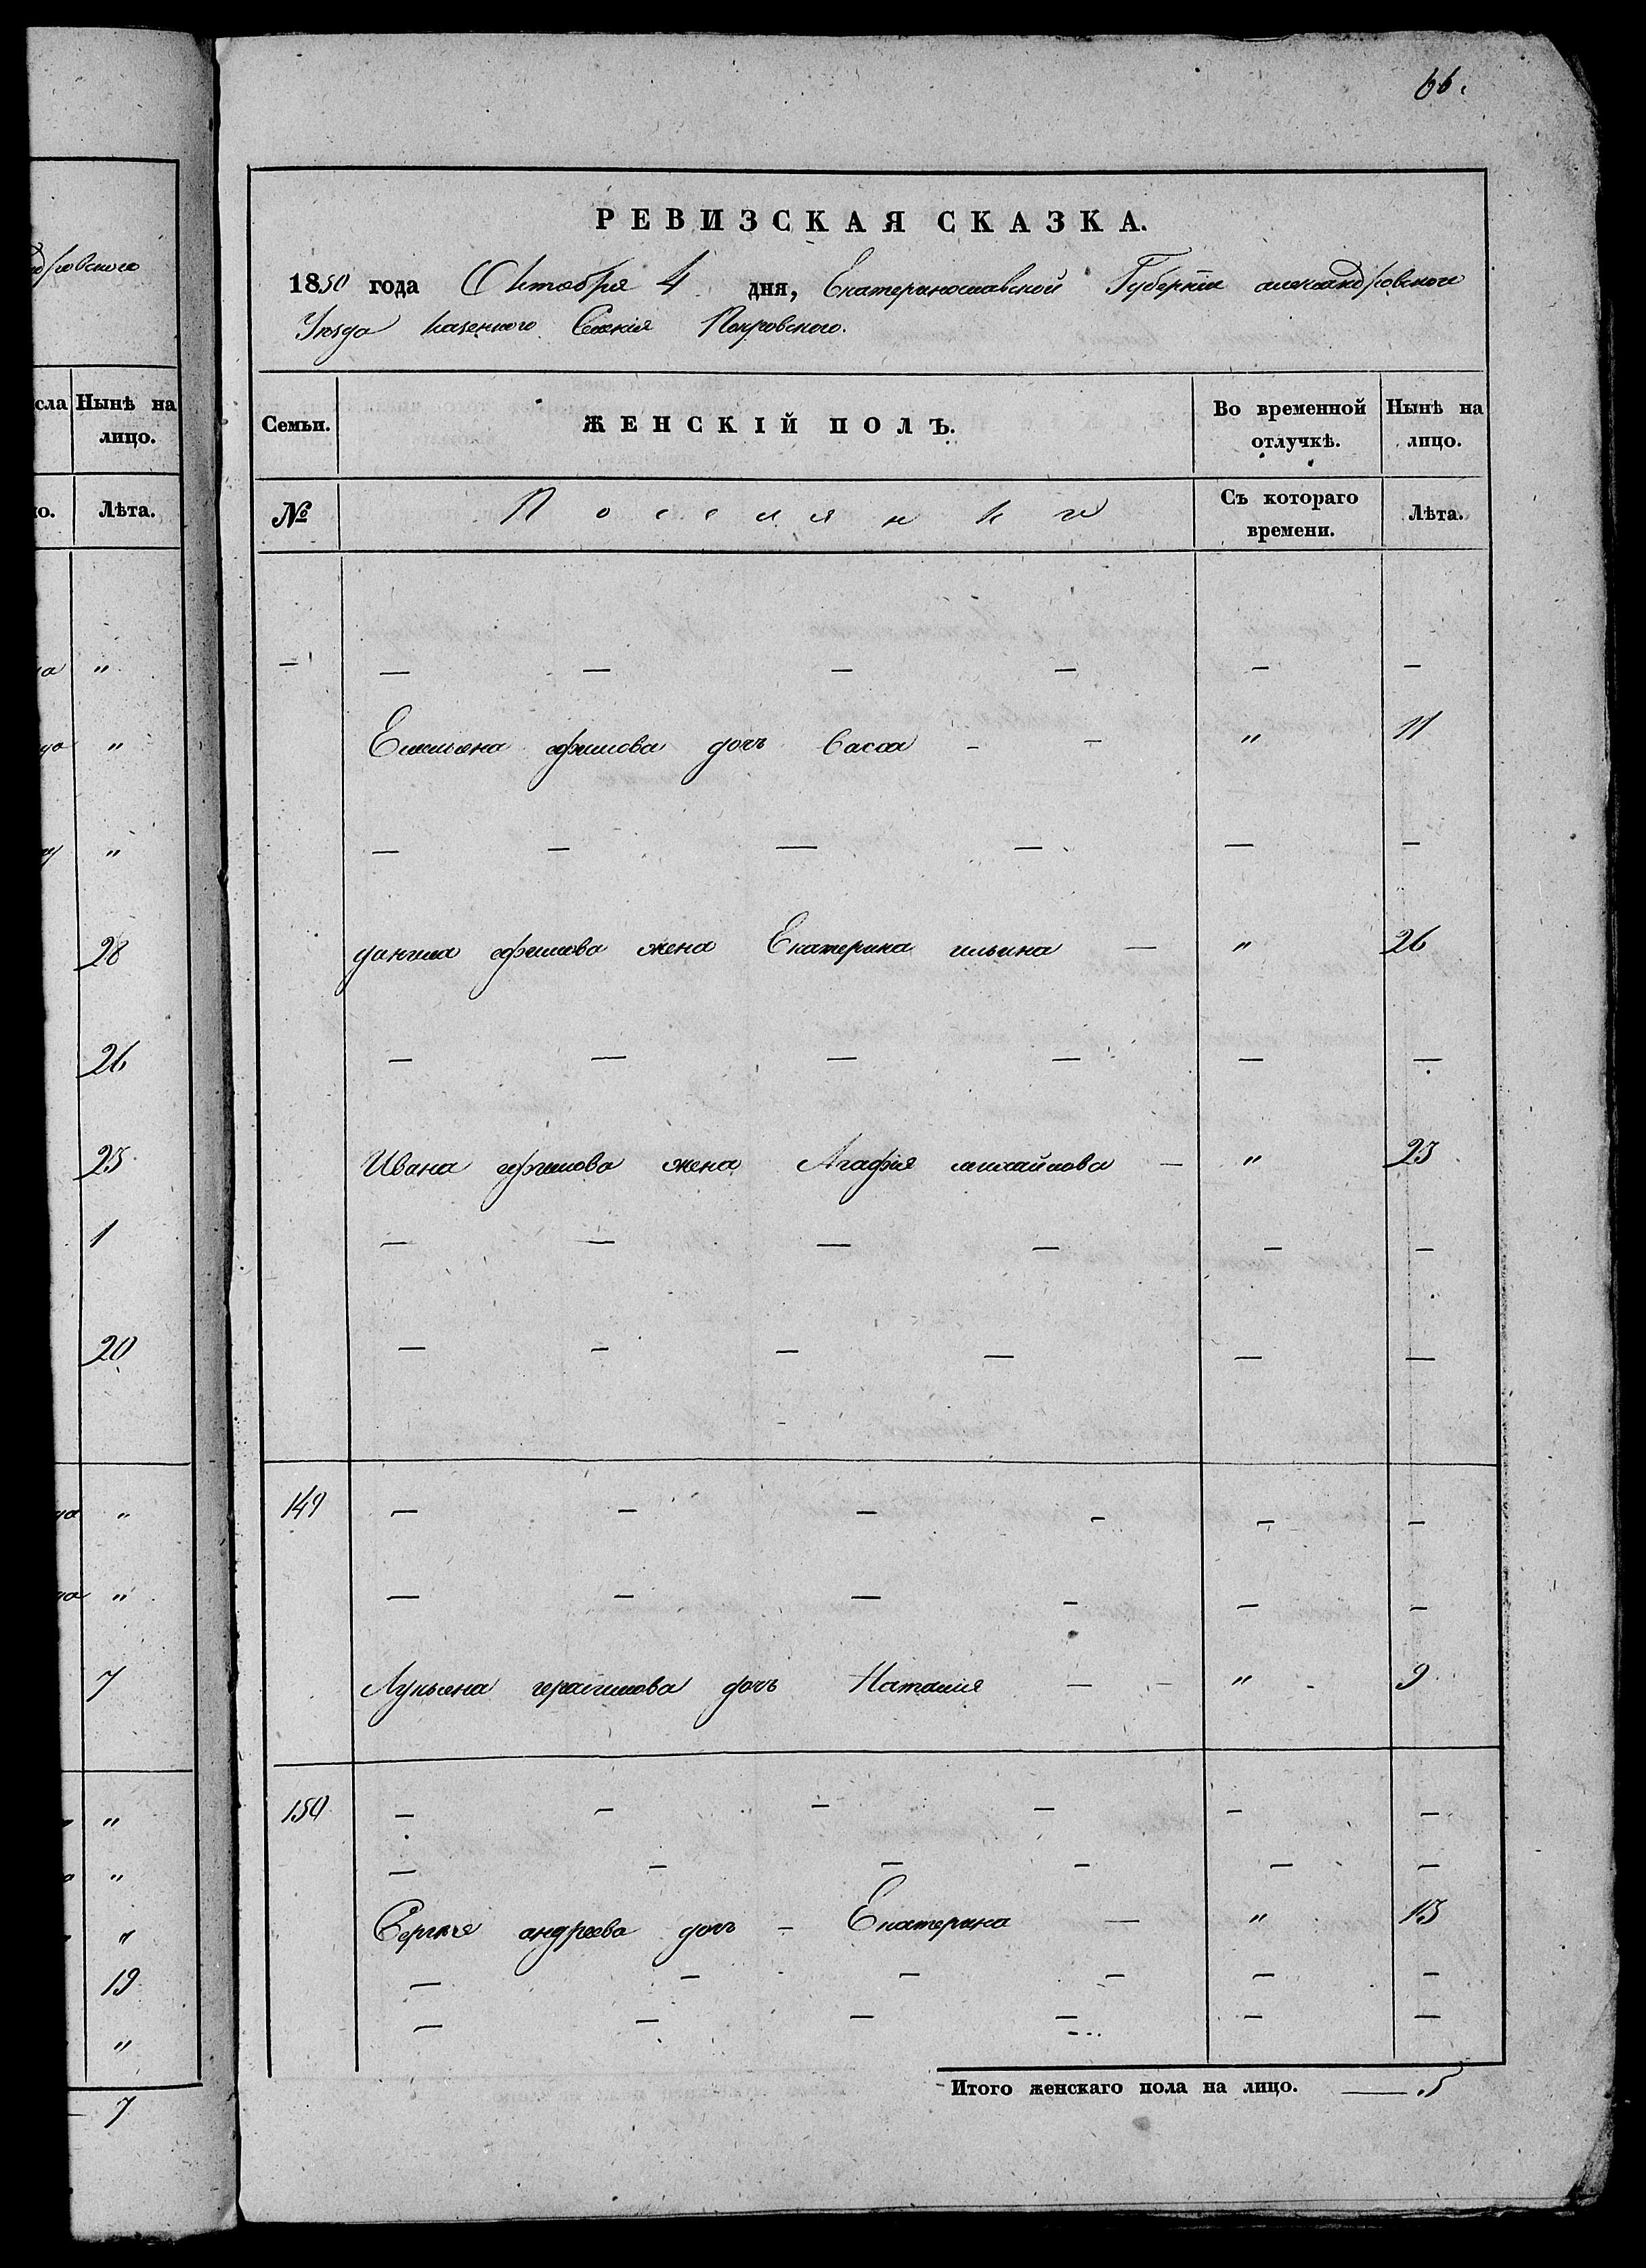 66.
РЕВИЗСКАЯ СКАЗКА.
1850 года Октября 4 дня, Екатеринославской Губерніи александровского
Уезда казенного Селенія Покровского.
Семьи. ЖЕНСКІЙ ПОЛЪ. Во временной отлучкѣ. Нынѣ на лицо.
№ Поселянки Съ котораго времени. Лѣта.
— — — — — — —
Емельяна ефимова дочь Васса — — " 11
— — — — — —
данила ефимова жена Екатерина ильина — " 26
— — — — — —
Ивана ефимова жена Агафія михайлова — " 23
— — — — — —
— — — — — —
149 — — — — — —
— — — — — —
Лукьяна герасимова дочь Наталия — — " 9
150 — — — — — —
— — — — — —
Сергея андреева дочь — Екатерина — " 13
— — — — — —
— — — — — —
Итого женскаго пола на лицо. — 5
дровского
сла Нынѣ на лицо.
ло. Лѣта.
"
"
"
28
26
23
1
20
"
"
7
"
"
"
19
"
— 7